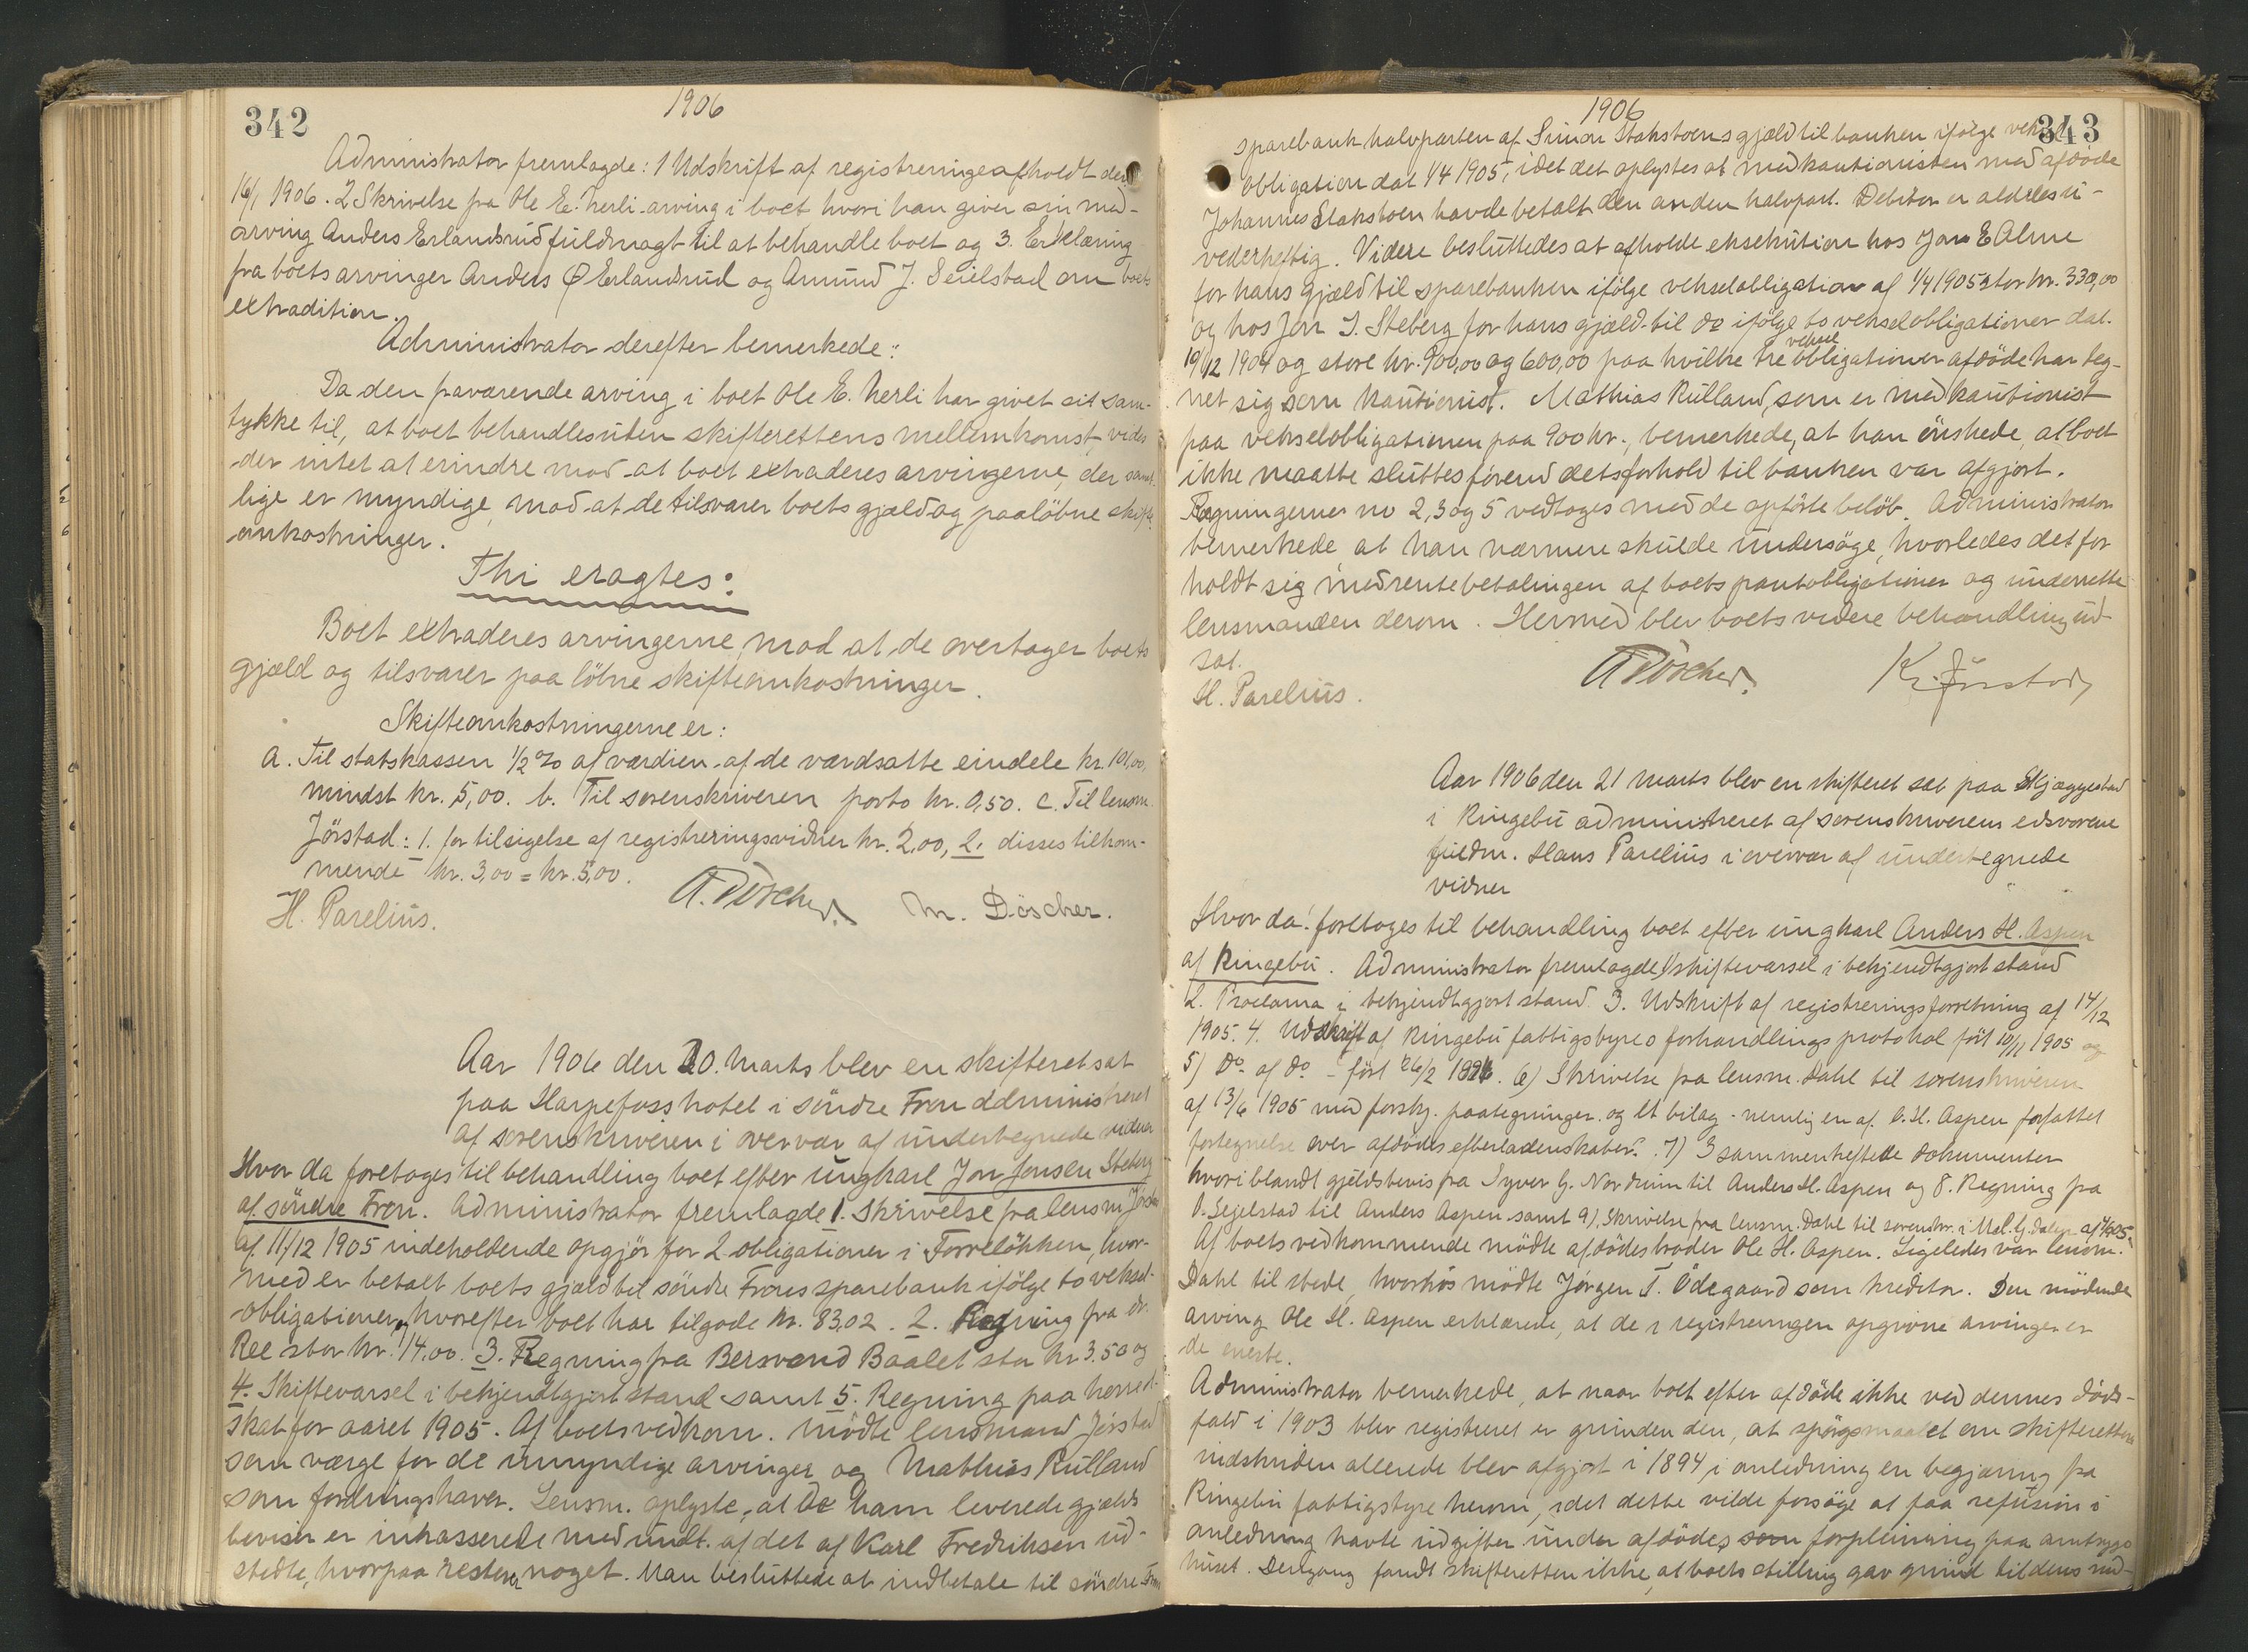 342
1906
Administrator fremlagde: 1 Udskrift af registreringe afholdt den
16/1 1906. 2 Skrivelse fra Ole E. Herli arving i boet hvori han giver sin med-
arving Anders Erlandsrud fuldmagt til at behandle boet og 3. Erklæring
fra boets arvinger Anders Ø Erlandsrud og Amund J. Seielstad om boets
extradition.
Administrator derefter bemerkede:
Da den fraværende arving i boet Ole E. Herli har givet sit sam-
tykke til, at boet behandles uden skifterettens mellemkomst, vides
der intet at erindre mod at boet extraderes arvingerne, der samt-
lige er myndige, mod at de tilsvarer boets gjæld og paaløbne skifte-
omkostninger.
Thi eragtes:
Boet extraderes arvingerne, mod at de overtager boets
gjæld og tilsvarer paa løbne skifteomkostninger.
Skifteomkostningerne er:
a. Til statskassen 1/2 % af værdien af de værdsatte eindele kr. 101,00,
mindst kr. 5,00. b. Til sorenskriveren porto kr. 0,50. c. Til lensm.
Jörstad: 1. for tilsigelse af registreringsvidner kr. 2,00, 2. disses tilkom-
mende kr. 3,00 = kr. 5,00.
H. Parelius. A. Döscher. M. Döscher.
Aar 1906 den 20. Marts blev en skifteret sat
paa Harpefoss hotel i søndre Fron administreret
af sorenskriveren i overvær af undertegnede vidner
Hvor da foretoges til behandling boet efter ungkarl Jon Jonsen Steberg
af søndre Fron. Administrator fremlagde 1. Skrivelse fra lensm Jörstad
af 11/12 1905 indeholdende opgjør for 2 obligationer i Forrelökken, hvor-
med er betalt boets gjæld til søndre Frons sparebank ifølge to veksel-
obligationer, og hvorefter boet har tilgode kr. 83,02. 2. Regning fra dr.
Ree stor kr. 14,00. 3. Regning fra Bersvend Baalet stor kr 3.50 og
4. Skiftevarsel i bekjendtgjort stand samt 5. Regning paa herred-
skat for aaret 1905. Af boets vedkom. mødte lensmand Jörstad
som værge for de umyndige arvinger og Mathias Rulland
som fordringshaver. Lensm. oplyste, at de ham leverede gjælds
beviser er inkasserede med undt. af det af Karl Fredriksen ud-
stedte, hvorpaa resterer noget. Man besluttede at indbetale til søndre Frons
343
1906
sparebank halvparten af Simon Stakstoens gjæld til banken ifølge veksel
obligation dat 1/4 1905, idet det oplystes at medkautionisten med afdøde
Johannes Stakstoen havde betalt den anden halvpart. Debitor er aldeles u-
vederheftig. Videre besluttedes at afholde eksekution hos Jon E Alme
for hans gjæld til sparebanken ifølge vekselobligation af 1/4 1905 stor kr. 330,00
og hos Jon J. Steberg for hans gjæld til do ifølge to vekselobligationer dat.
10/12 1904 og store kr. 900,00 og 600,00 paa hvilke tre veksel obligationer afdøde har teg-
net sig som kautionist. Mathias Rulland, som er medkautionist
paa vekselobligationen paa 900 kr., bemerkede, at han ønskede, at boet
ikke maatte sluttes førend dets forhold til banken var afgjort.
Regningerne no 2, 3 og 5 vedtoges med de opførte beløb. Administrator
bemerkede at han nærmere skulde undersøge, hvorledes det for
holdt sig med rentebetalingen af boets pantobligationer og underrette
lensmanden derom. Hermed blev boets videre behandling ud-
sat.
H. Parelius. A Döscher. K. Jörstad
Aar 1906 den 21 marts blev en skifteret sat paa Skjæggestad
i Ringebu administreret af sorenskriverens edsvorene
fuldm. Hans Parelius i overvær af undertegnede
vidner
Hvor da: foretoges til behandling boet efter ungkarl Anders H. Aspen
af Ringebu. Administrator fremlagde 1) skiftevarsel i bekjendtgjort stand
2. Proclama i bekjendtgjort stand 3. Udskrift af registreringsforretning af 14/12
1905. 4. Udskrift af Ringebu fattigstyres forhandlings protokol ført 10/11 1905 og
5) Do. af do - ført 26/2 1894. 6) Skrivelse fra lensm. Dahl til sorenskriveren
af 13/6 1905 med forskj. paategninger og et bilag - nemlig en af O. H. Aspen forfattet
fortegnelse over afdødes efterladenskaber. 7) 3 sammenheftede dokumenter
hvoriblandt gjeldsbevis fra Syver G. Nordrum til Anders H. Aspen og 8. Regning fra
O. Sejelstad til Anders Aspen samt 9). Skrivelse fra lensm. Dahl til sorenskr. i
Af boets vedkommende mødte afdødes broder Ole H. Aspen. Ligeledes var lensm.
Dahl til stede, hvorhos mødte Jørgen T. Ödegaard som kreditor. Den mødende
arving Ole H. Aspen erklærede, at de i registreringen opgivne arvinger er
de eneste.
Administrator bemerkede, at naar boet efter afdøde ikke ved dennes døds-
fald i 1903 blev registreret er grunden den, at spørgsmaalet om skifterettens
indskriden allerede blev afgjort i 1894, i anledning en begjæring fra
Ringebu fattigstyre herom, idet dette vilde forsøge at faa refusion i
anledning havte udgifter under afdødes som forpleining paa amtssyge
huset. Dengang fandt skifteretten ikke, at boets stilling gav grund til dens ind-